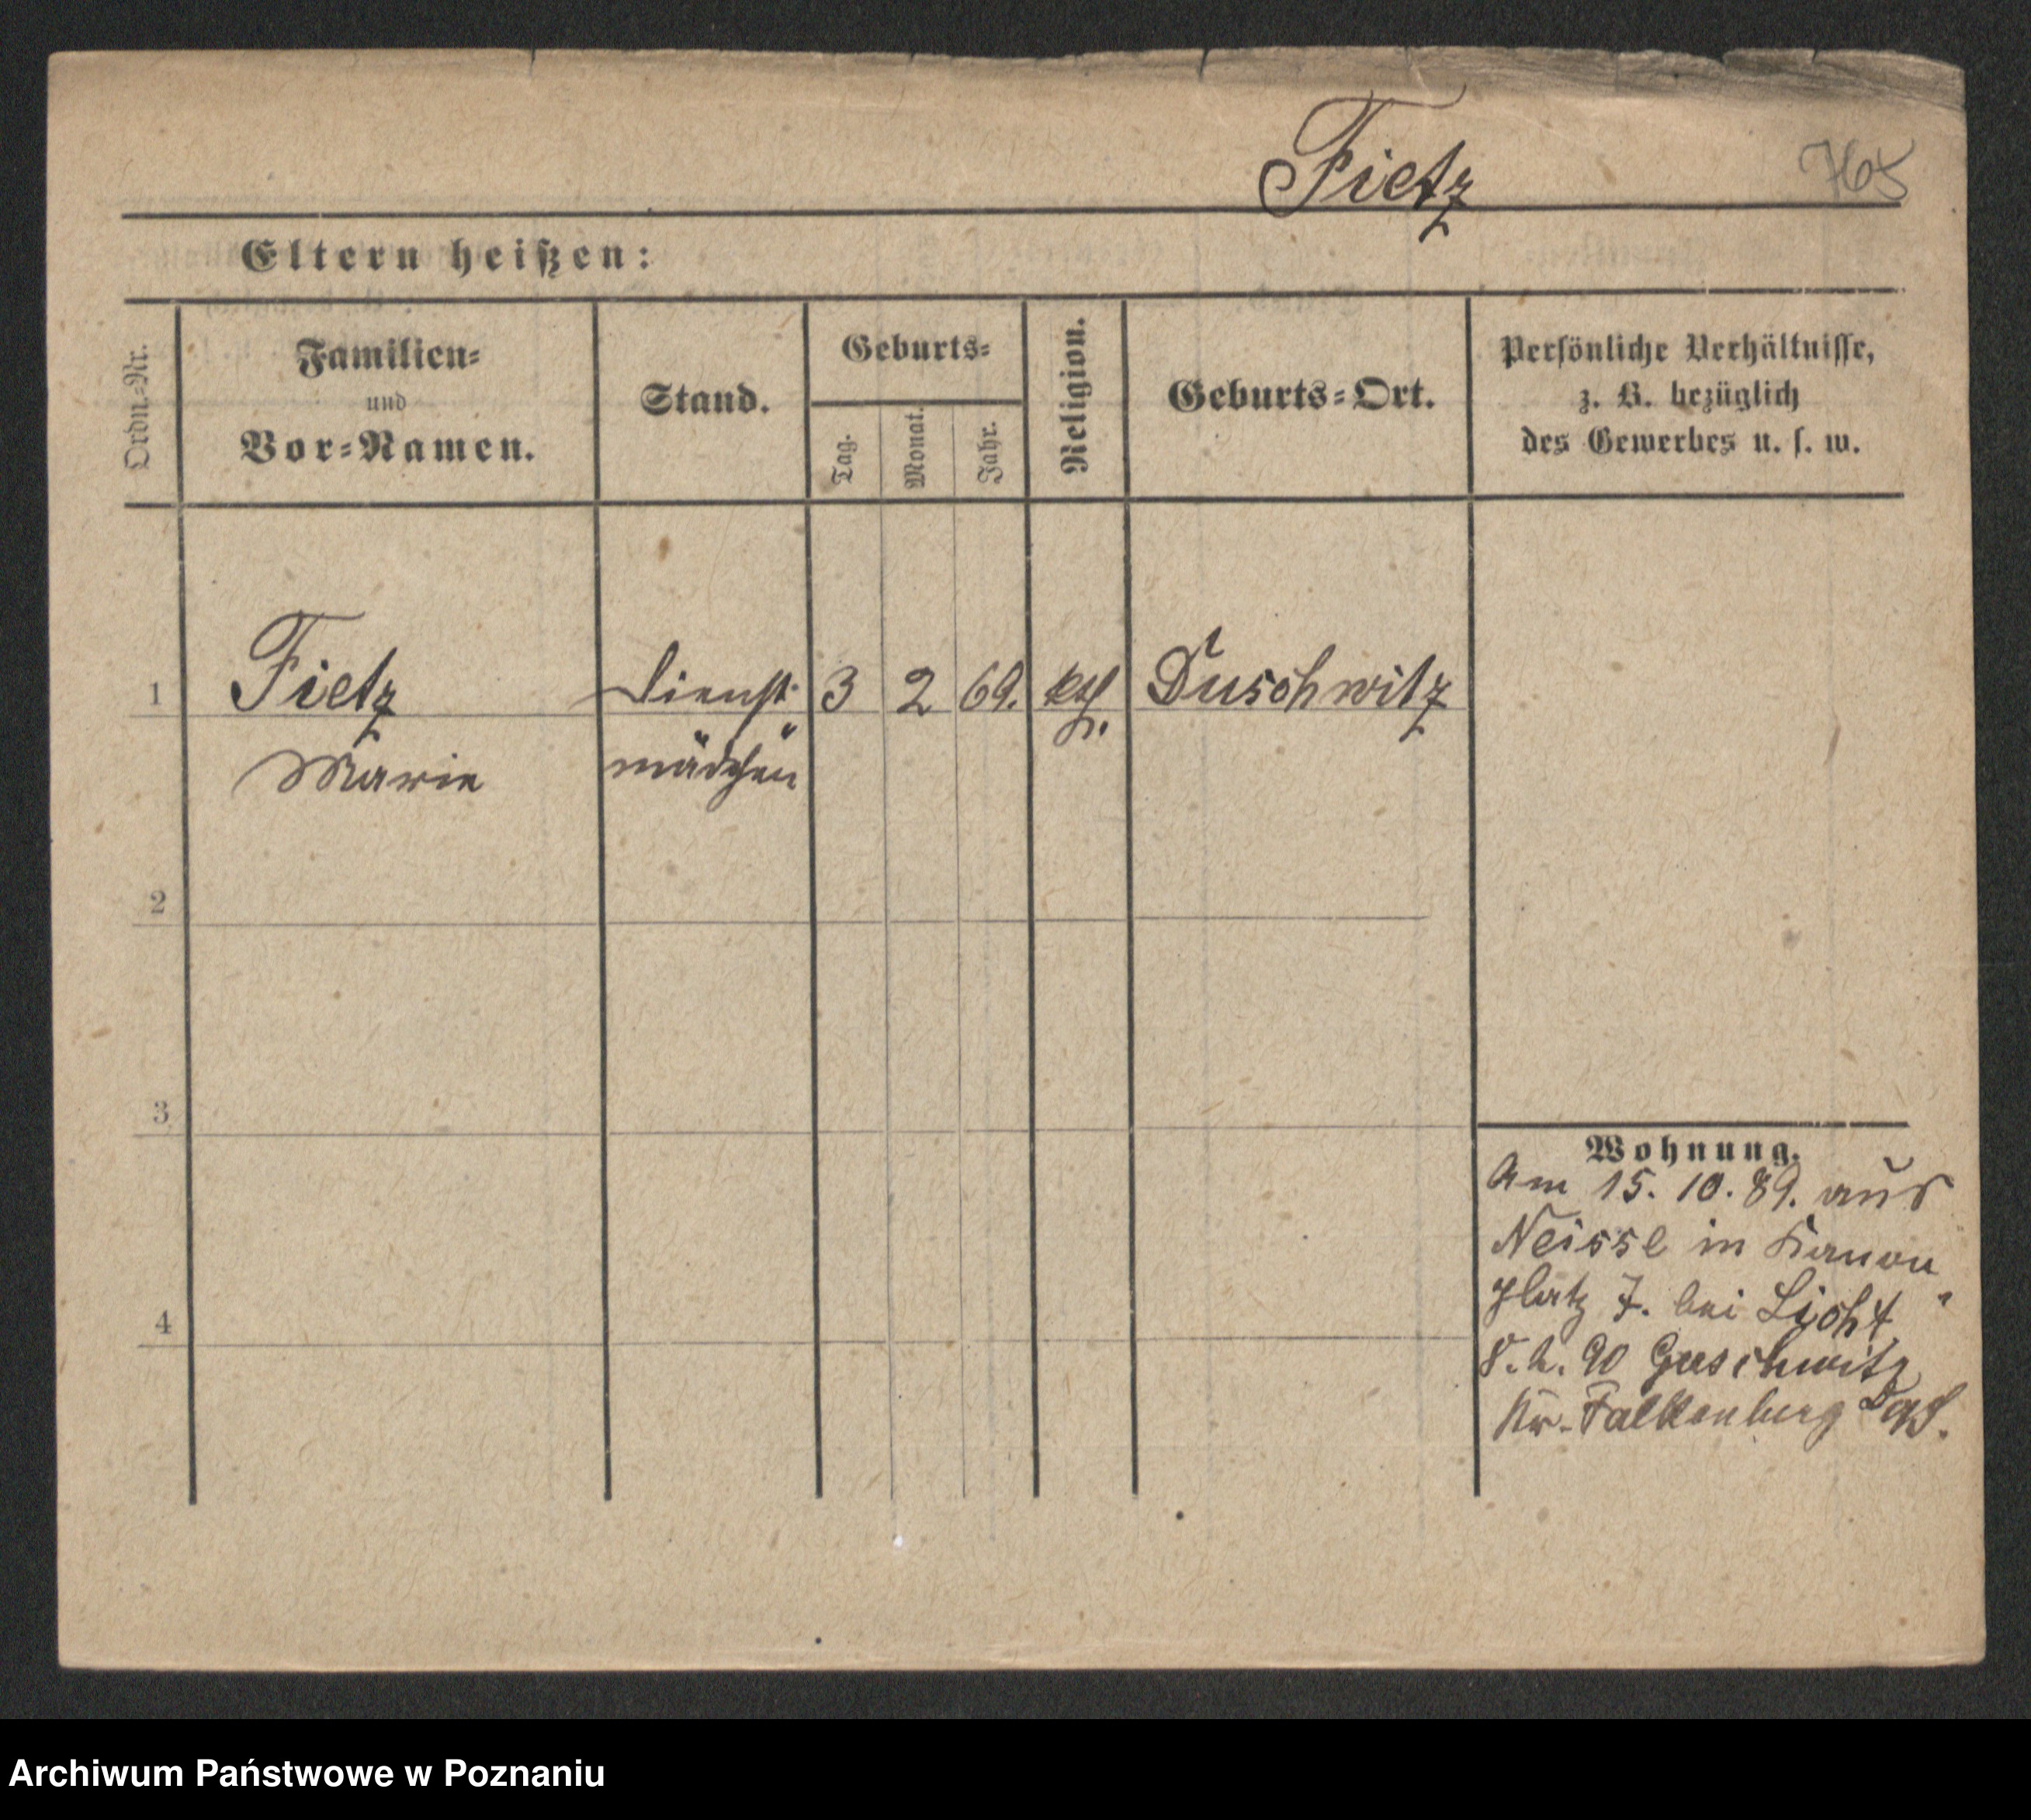 Fietz
765
Eltern heißen:
Ordn.-Nr.
Familien-
und
Vor-Namen.
Stand.
Geburts-
Tag.
Monat.
Jahr.
Religion.
Geburts-Ort.
Persönliche Verhältnisse,
z. B. bezüglich
des Gewerbes u. s. w.
1 Fietz Dienst- 3 2 69. kth. Duschwitz
Marie mädchen
2
3
4
Wohnung.
Am 15. 10. 89. aus
Neisse in Kanon
platz 7. bei Licht
90 Guschwitz
Kr. Falkenberg
Archiwum Państwowe w Poznaniu